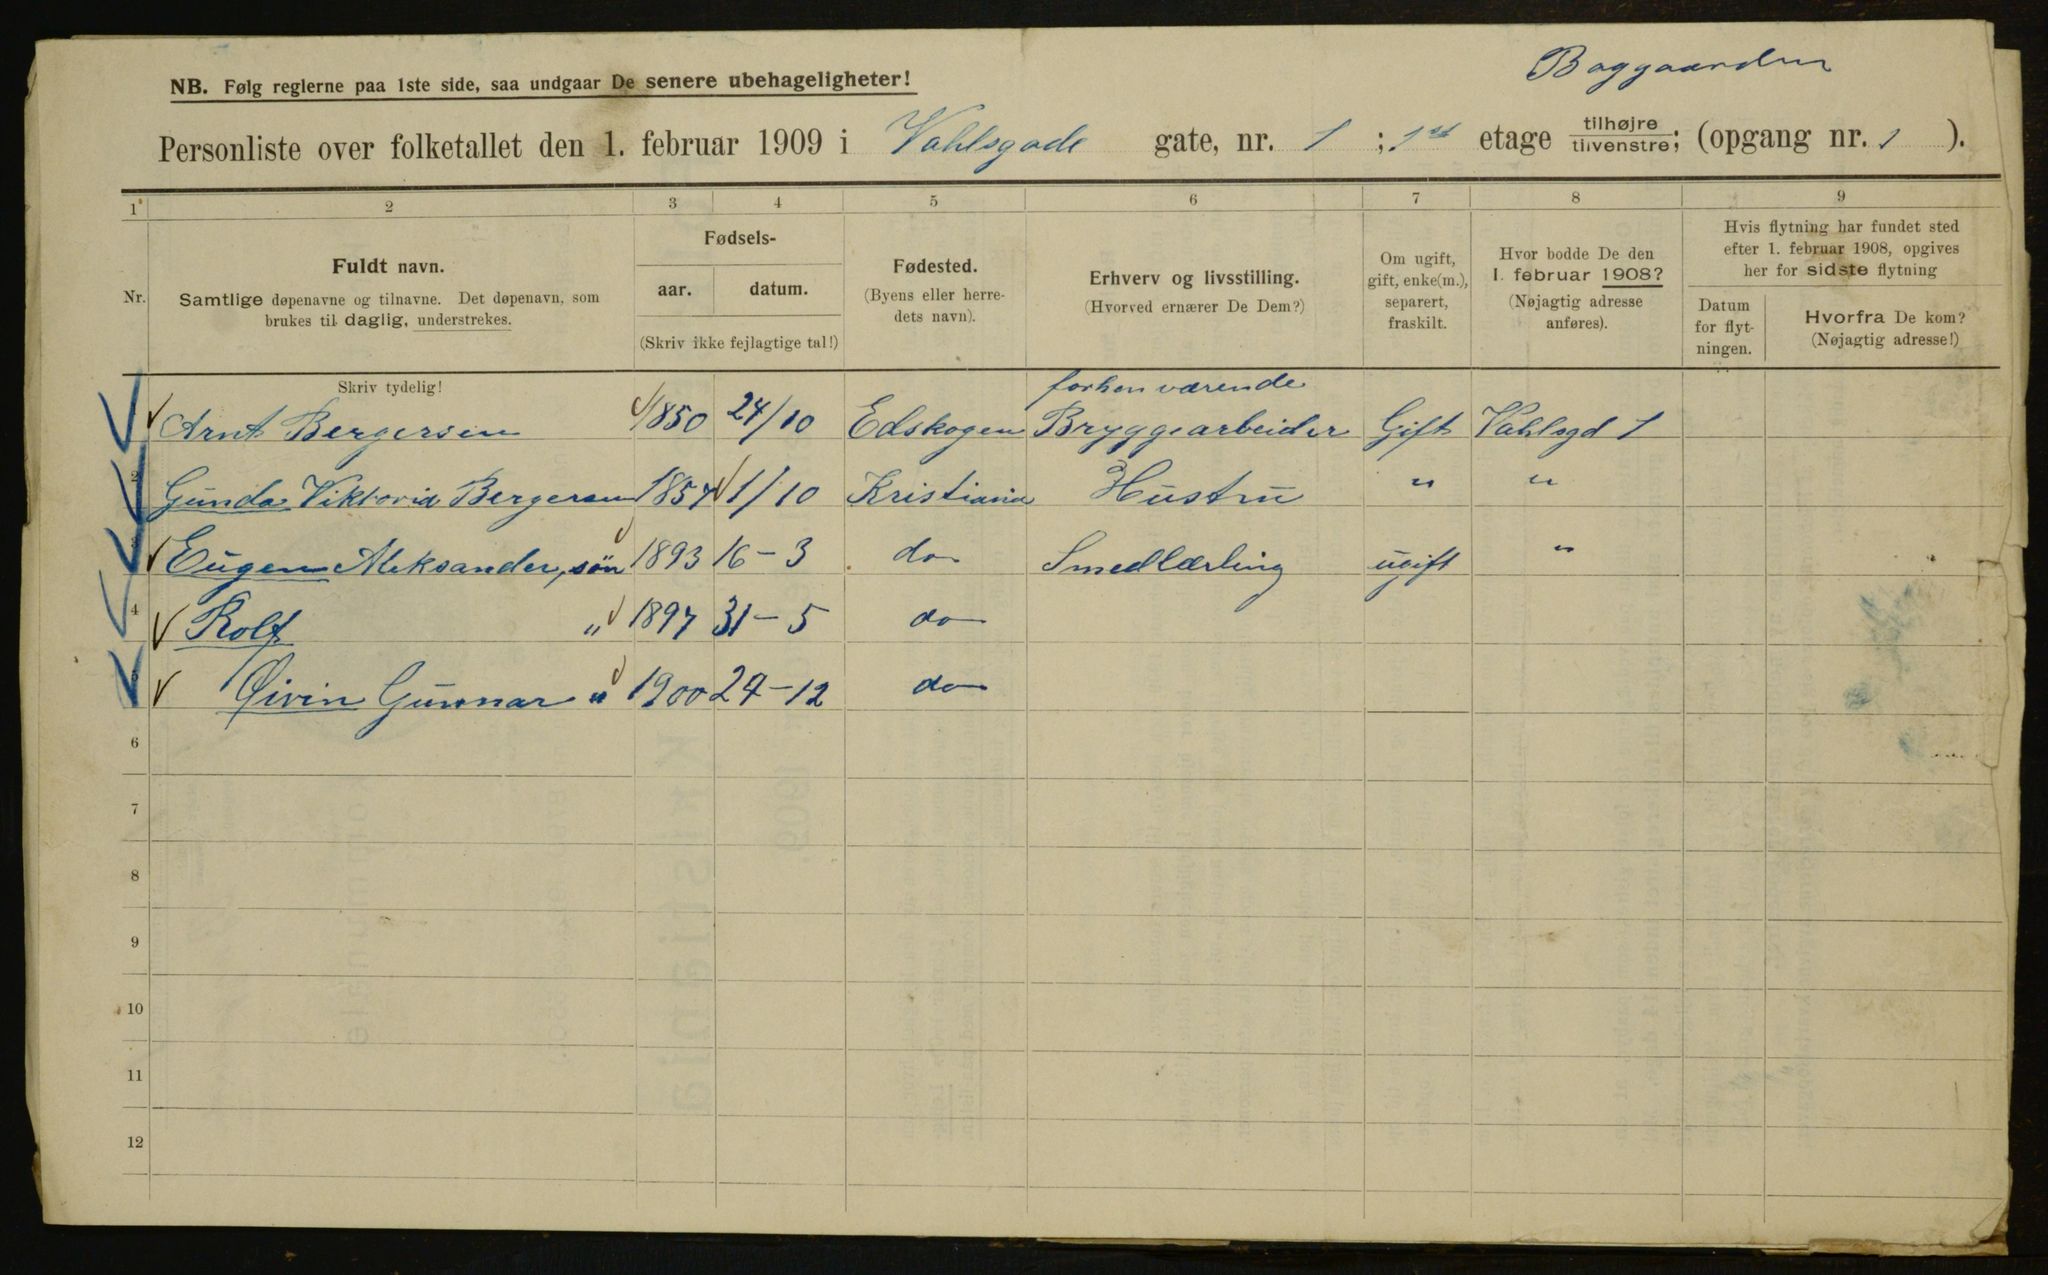 Baggaarden
NB. Følg reglerne paa 1ste side, saa undgaar De senere ubehageligheter!
Personliste over folketallet den 1. februar 1909 i Vahlsgade gate, nr. 1 ; 1st etage tilhøjre tilvenstre; (opgang nr. 1 ).
1 2 3 4 5 6 7 8 9
Nr.
Fuldt navn.
Samtlige døpenavne og tilnavne. Det døpenavn, som
brukes til daglig, understrekes.
Fødsels-
aar. datum.
(Skriv ikke fejlagtige tal!)
Fødested.
(Byens eller herre-
dets navn).
Erhverv og livsstilling.
(Hvorved ernærer De Dem?)
Om ugift,
gift, enke(m.),
separert,
fraskilt.
Hvor bodde De den
1. februar 1908?
(Nøjagtig adresse
anføres).
Hvis flytning har fundet sted
efter 1. februar 1908, opgives
her for sidste flytning
Datum
for flyt-
ningen.
Hvorfra De kom?
(Nøjagtig adresse!)
Skriv tydelig!
forhenværende
Arnt Bergersen 1850 24/10 Edskogen Bryggearbeider Gift Vahlsgd 1
2 Gunda Viktoria Bergersen 1857 1/10 Kristiania Hustru " "
3 Eugen Aleksander, søn 1893 16-3 do Smedlærling ugift "
4 Rolf " 1897 31-5 do
5 Øivin Gunnar " 1900 24-12 do
6
7
8
9
10
11
12